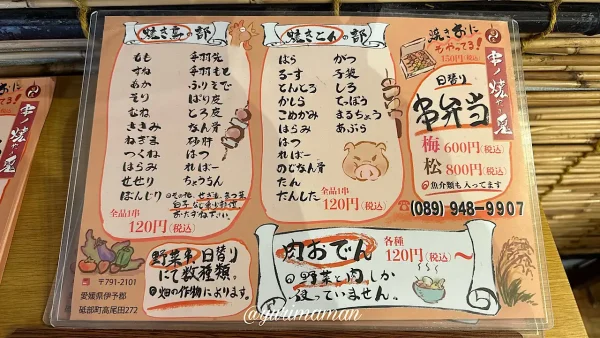 焼き鳥の部
もも 手羽先
すね 手羽もと
あか ふりそで
そり ぱり皮
むね とろ皮
ささみ なん骨
ねぎま 砂肝
つくね はつ
はらみ ればー
せせり ちょうちん
ぼんじり
全品1串
120円(税込)
焼きとんの部
ばら がつ
ろーす 子袋
とんとろ しろ
かしら てっぽう
こめかみ まるちょう
はらみ あぶら
はつ
ればー
のどなん骨
たん
たんした
全品1串
120円(税込)
焼きおに
ちやってる!
150円(税込)
日替り
串弁当
梅600円(税込)
松800円(税込)
魚介類も入ってます
串ノ焼だる屋
☎(089)948-9907
野菜串、日替り
にて数種類。
畑の作物によります。
〒791-2101
愛媛県伊予郡
砥部町高尾田272
肉おでん 各種120円(税込)～
野菜と肉しか
扱っていません。
@yurimaman